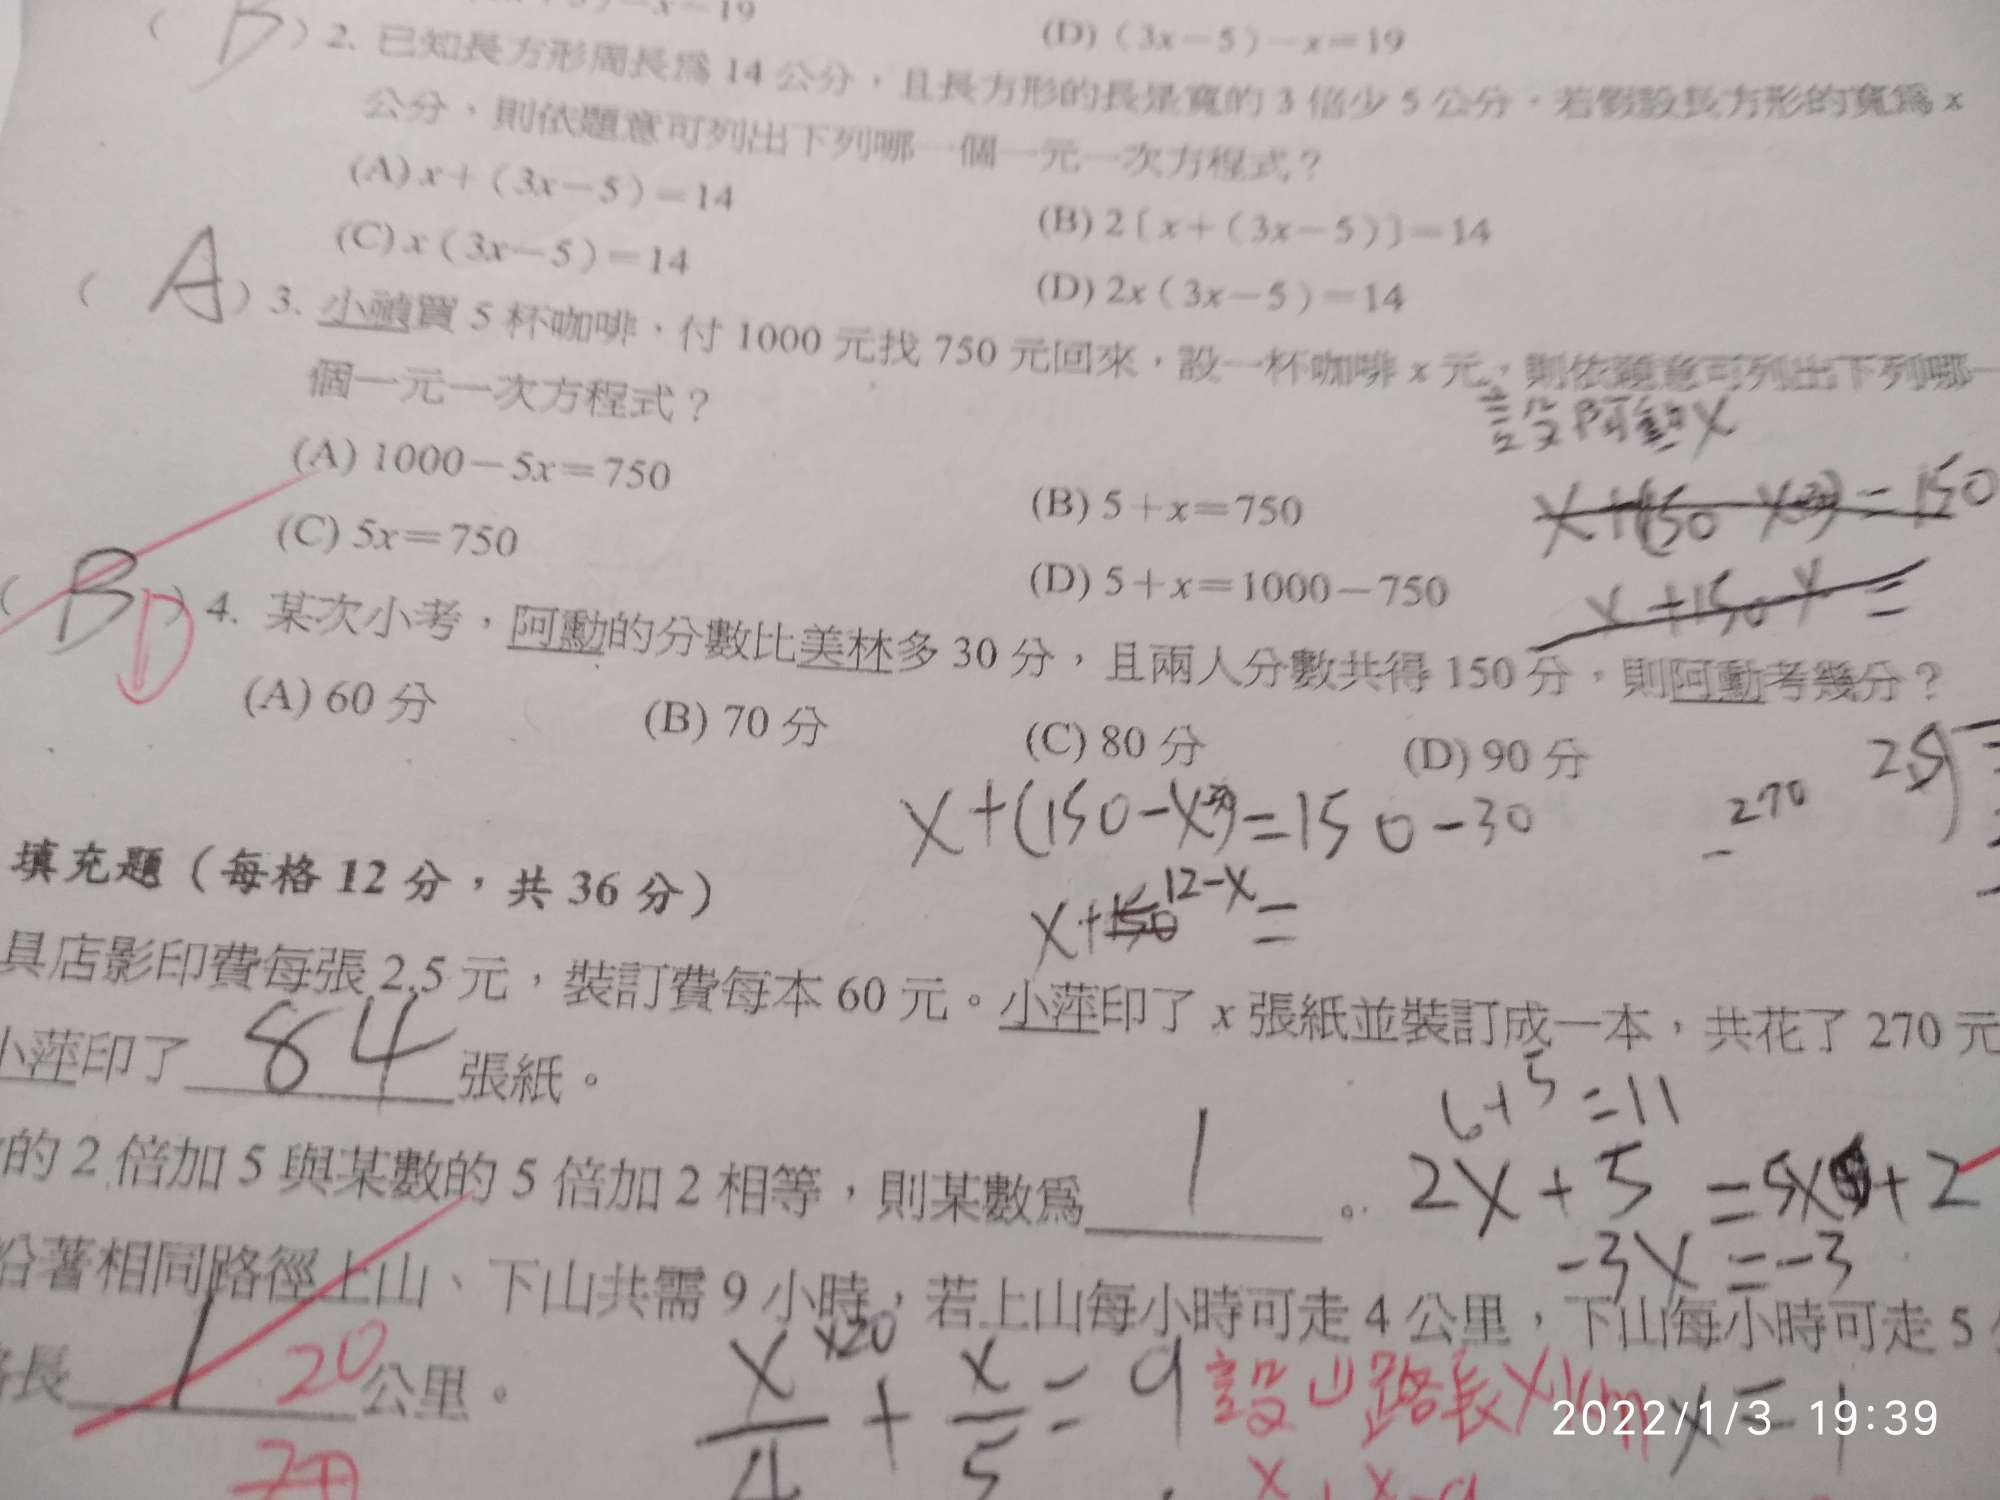 (D)(3x-5)-x=19
(B)2. 已知長方形周長為14公分，且長方形的長是寬的3倍少5公分，若假設長方形的寬為x
公分，則依題意可列出下列哪一個一元一次方程式？
(A)x+(3x-5)=14
(B)2[x+(3x-5)]=14
(C)x(3x-5)=14
(D)2x(3x-5)=14
(A)3. 小禎買5杯咖啡，付1000元找750元回來，設一杯咖啡x元，則依題意可列出下列哪一
個一元一次方程式？
設阿勳X
(A)1000-5x=750
(B)5+x=750
(C)5x=750
(D)5+x=1000-750
(B D)4. 某次小考，阿勳的分數比美林多30分，且兩人分數共得150分，則阿勳考幾分？
(A)60分 (B)70分 (C)80分 (D)90分
x+(150-x30)=150-30
270 25
x+150 12-x=
填充題（每格12分，共36分）
具店影印費每張2.5元，裝訂費每本60元。小萍印了x張紙並裝訂成一本，共花了270元
小萍印了84張紙。
6+5=11
的2倍加5與某數的5倍加2相等，則某數為1。
2x+5=5x+2
-3x=-3
沿著相同路徑上山、下山共需9小時，若上山每小時可走4公里，下山每小時可走5
長1 20公里。
x/4+x/5=9
x20
設山路長x km
x=1
2022/1/3 19:39